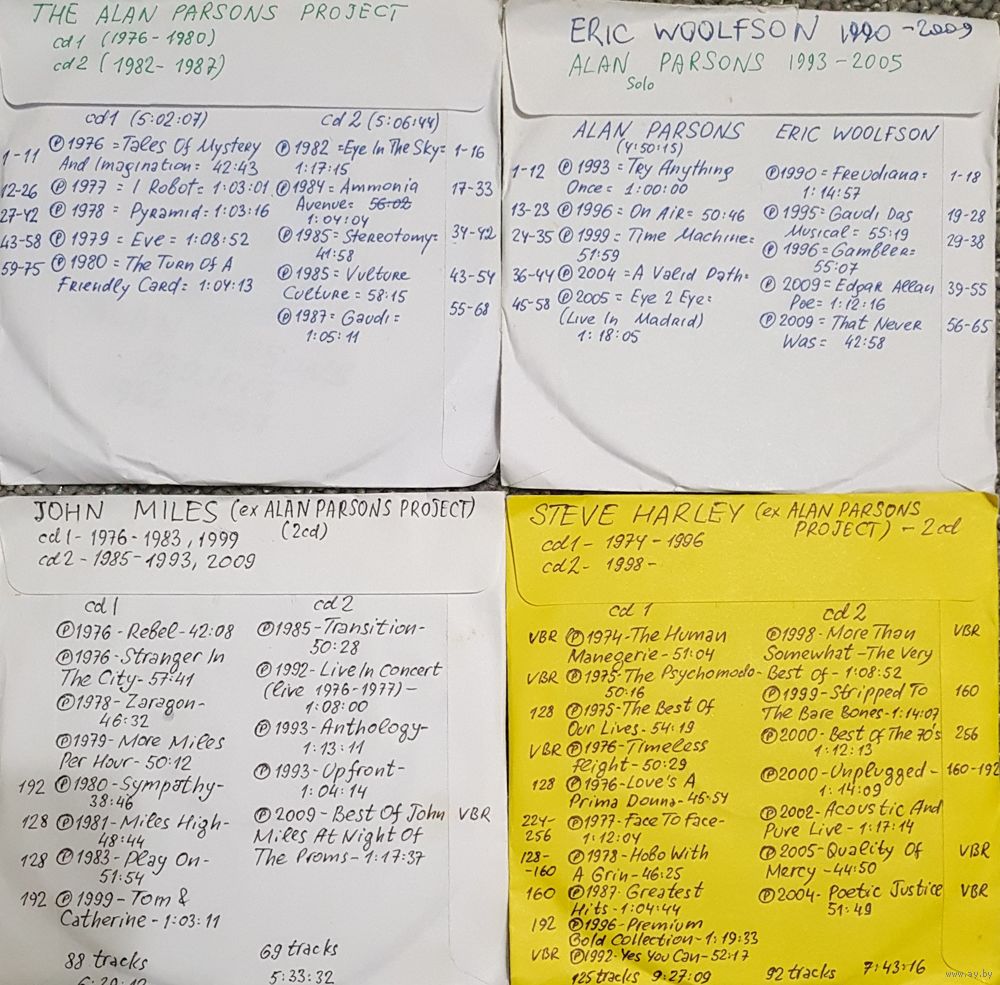 THE ALAN PARSONS PROJECT
cd1 (1976-1980)
cd2 (1982-1987)
cd1 (5:02:07)
1-11 Ⓟ1976 = Tales Of Mystery
And Imagination= 42:43
12-26 Ⓟ1977 = I Robot= 1:03:01
27-42 Ⓟ1978 = Pyramid= 1:03:16
43-58 Ⓟ1979 = Eve= 1:08:52
59-75 Ⓟ1980 = The Turn Of A
Friendly Card= 1:04:13
cd2 (5:06:44)
Ⓟ1982 =Eye In The Sky= 1-16
1:17:15
Ⓟ1984= Ammonia 17-33
Avenue= 56:02
1:04:04
Ⓟ1985= Stereotomy= 34-42
41:58
Ⓟ1985= Vulture 43-54
Culture= 58:15
Ⓟ1987= Gaudi= 55-68
1:05:11
ERIC WOOLFSON 1990-2009
ALAN PARSONS 1993-2005
Solo
ALAN PARSONS
(4:50:15)
1-12 Ⓟ1993= Try Anything
Once= 1:00:00
13-23 Ⓟ1996= On Air= 50:46
24-35 Ⓟ1999= Time Machine=
51:59
36-44 Ⓟ2004 =A Valid Path=
45-58 Ⓟ2005= Eye 2 Eye=
(Live In Madrid)
1:18:05
ERIC WOOLFSON
Ⓟ1990= Freudiana= 1-18
1:14:57
Ⓟ1995= Gaudi Das 19-28
Musical= 55:19
Ⓟ1996= Gambler= 29-38
55:07
Ⓟ2009= Edgar Allan 39-55
Poe= 1:12:16
Ⓟ2009= That Never 56-65
Was= 42:58
JOHN MILES (ex ALAN PARSONS PROJECT)
cd1-1976-1983, 1999 (2cd)
cd2-1985-1993, 2009
cd1
Ⓟ1976-Rebel-42:08
Ⓟ1976-Stranger In
The City-57:41
Ⓟ1978-Zaragon-
46:32
Ⓟ1979-More Miles
Per Hour-50:12
192 Ⓟ1980-Sympathy-
38:46
128 Ⓟ1981-Miles High-
48:44
128 Ⓟ1983-Play On-
51:54
192 Ⓟ1999-Tom &
Catherine-1:03:11
88 tracks
cd2
Ⓟ1985-Transition-
50:28
Ⓟ1992-Live In Concert
(live 1976-1977)-
1:08:00
Ⓟ1993-Anthology-
1:13:11
Ⓟ1993-Upfront-
1:04:14
Ⓟ2009-Best Of John VBR
Miles At Night Of
The Proms-1:17:37
69 tracks
5:33:32
STEVE HARLEY (ex ALAN PARSONS
PROJECT) - 2cd
cd1- 1974-1996
cd2- 1998-
cd 1
VBR Ⓟ1974-The Human
Manegerie-51:04
VBR Ⓟ1975-The Psychomodo-
50:16
128 Ⓟ1975-The Best Of
Our Lives-54:19
VBR Ⓟ1976-Timeless
flight-50:29
128 Ⓟ1976-Love's A
Prima Donna-45:54
224-256 Ⓟ1977-Face To Face-
1:12:04
128-160 Ⓟ1978-Hobo With
A Grin-46:25
160 Ⓟ1987-Greatest
Hits-1:04:44
192 Ⓟ1996-Premium
Gold Collection-1:19:33
VBR Ⓟ1992-Yes You Can-52:17
125 tracks 9:27:09
cd2
Ⓟ1998-More Than VBR
Somewhat-The Very
Best Of-1:08:52
Ⓟ1999-Stripped To 160
The Bare Bones-1:14:07
Ⓟ2000-Best Of The 70's 256
1:12:13
Ⓟ2000-Unplugged- 160-192
1:14:09
Ⓟ2002-Acoustic And
Pure Live-1:17:14
Ⓟ2005-Quality Of VBR
Mercy-44:50
Ⓟ2004-Poetic Justice VBR
51:49
92 tracks 7:43:16
www.ay.by